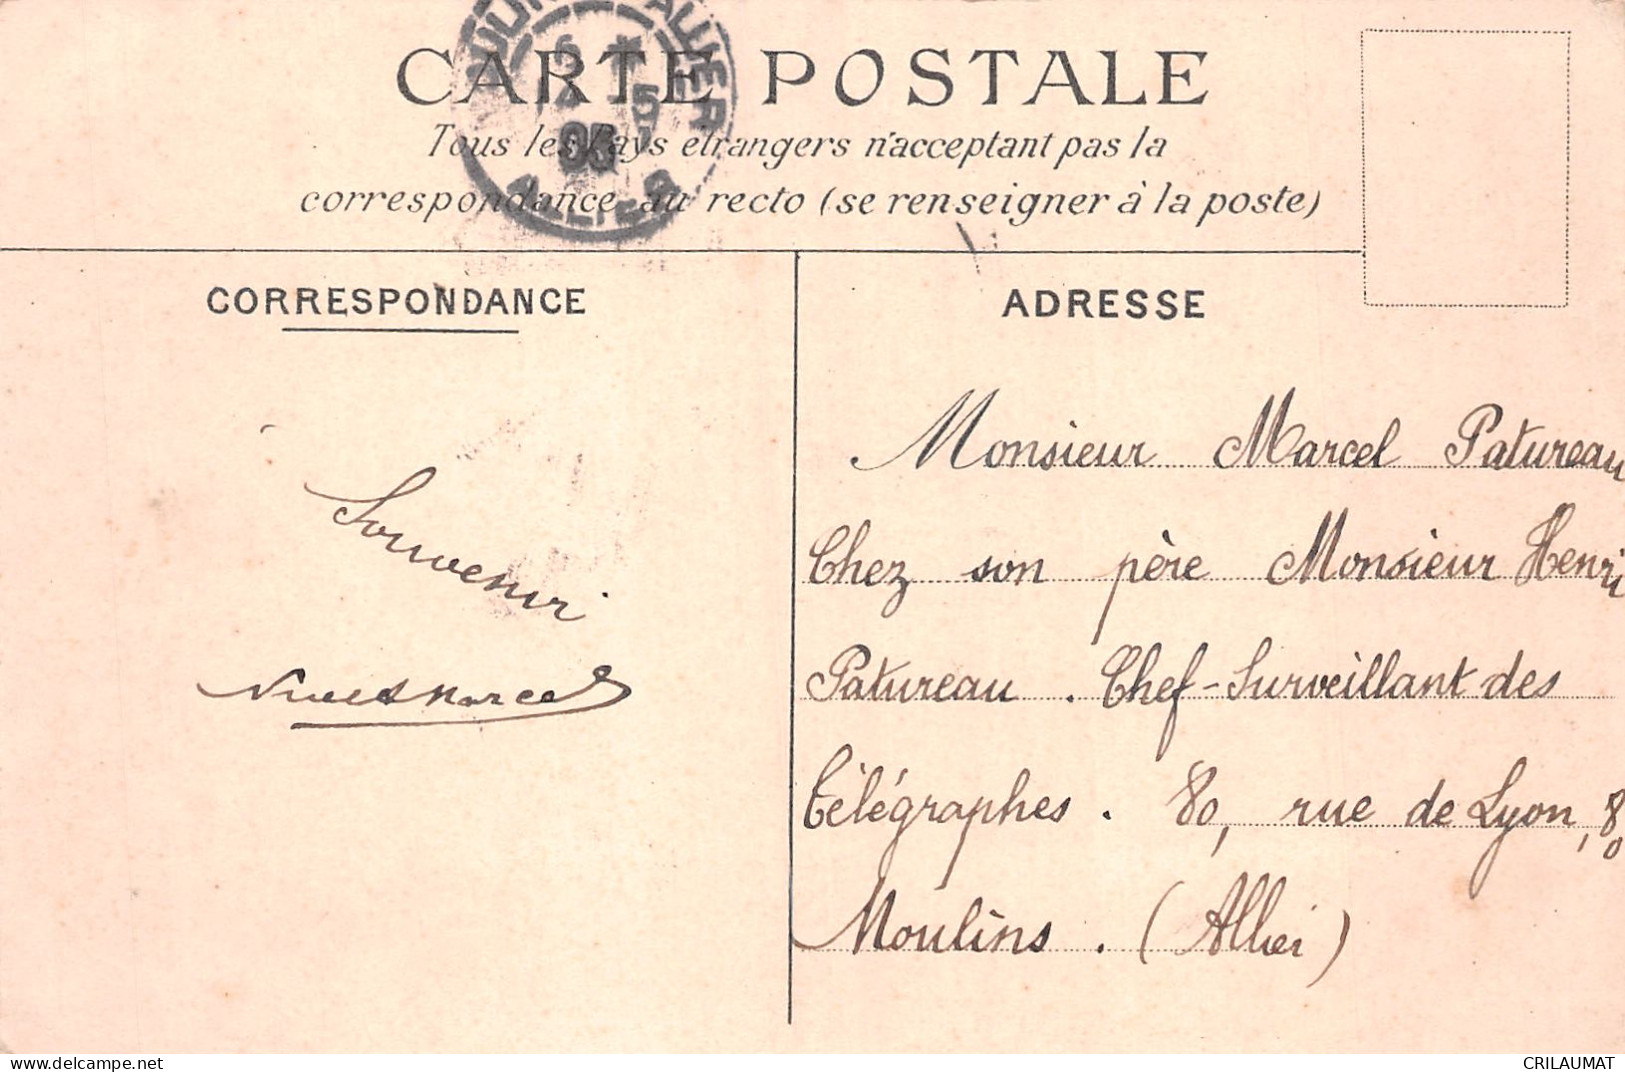 CARTE POSTALE
Tous les Pays étrangers n'acceptent pas la
correspondance au recto (se renseigner à la poste)
CORRESPONDANCE
ADRESSE
Souvenir
Marcel
Monsieur Marcel Patureau
Chez son père Monsieur Henri
Patureau. Chef-Surveillant des
Télégraphes. 80, rue de Lyon, 80
Moulins. (Allier)
ALLIER
5
www.delcampe.net
CRILAUMAT